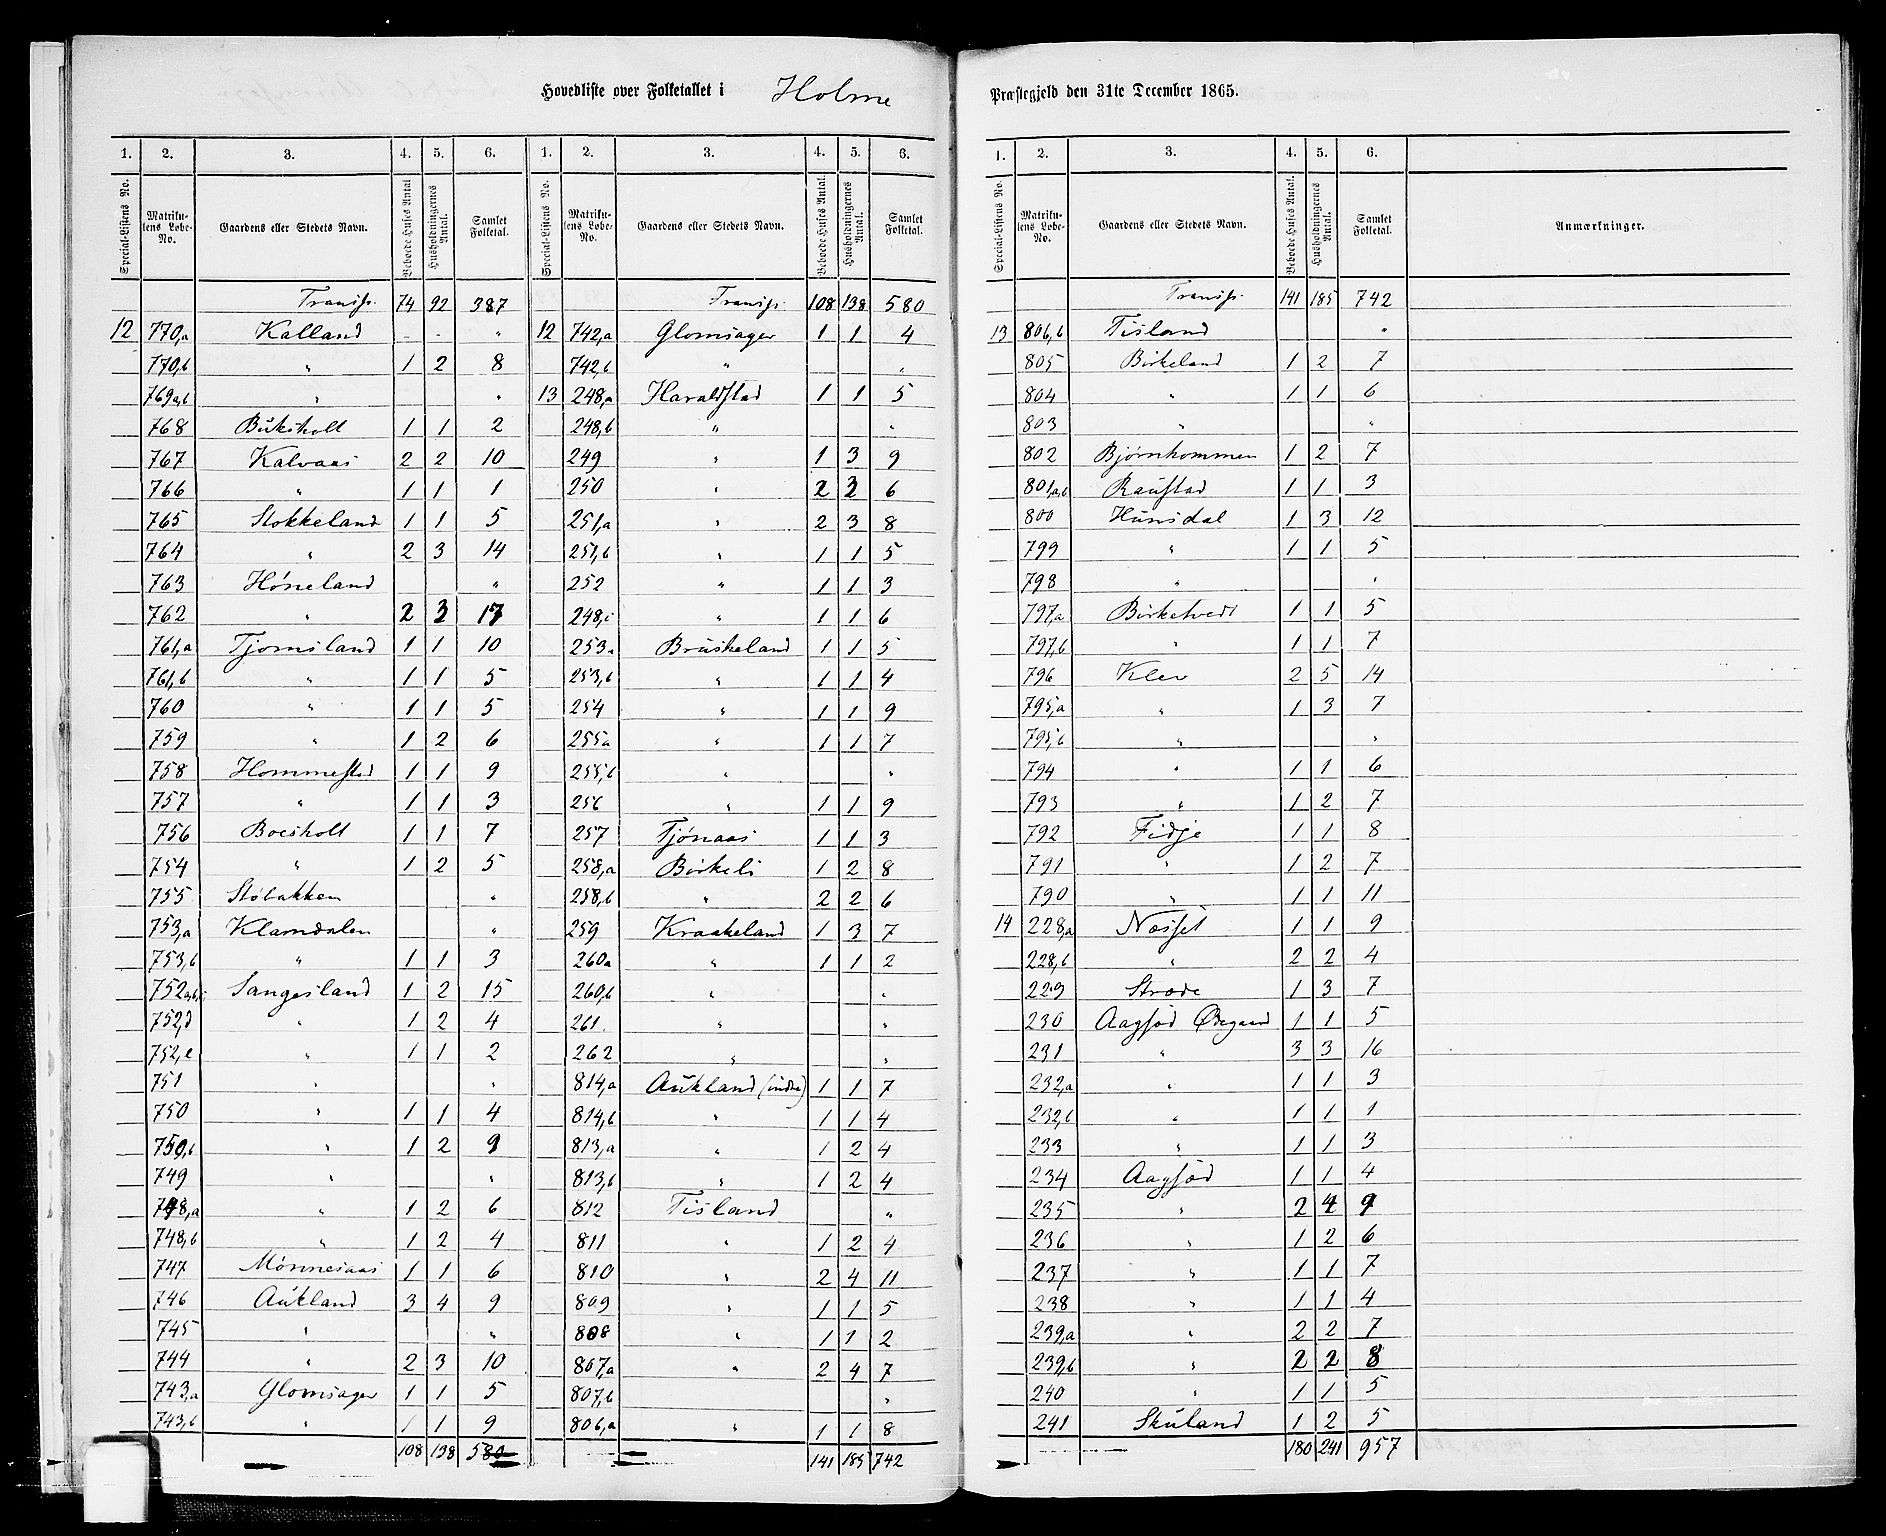 Hovedliste over Folketallet i Holme
1. 2. 3. 4. 5. 6. 1. 2. 3. 4. 5. 6.
Special-Listens No. Matrikulens Løbe-No. Gaardens eller Stedets Navn. Beboede Huses Antal Husholdningernes Antal. Samlet Folketal. Special-Listens No. Matrikulens Løbe-No. Gaardens eller Stedets Navn. Beboede Huses Antal. Husholdningernes Antal. Samlet Folketal.
Transp. 74 92 387
12 770,a Kalland - - "
770,b " 1 2 8
769a,b " "
768 Buksholt 1 1 2
767 Kalvaas 2 2 10
766 " 1 1 1
765 Stokkeland 1 1 5
764 " 2 3 14
763 Høneland "
762 " 2 3 17
761,a Tjomsland 1 1 10
761,b " 1 1 5
760 " 1 1 5
759 " 1 2 6
758 Hommestad 1 1 9
757 " 1 1 3
756 Boesholt 1 1 7
754 " 1 2 5
755 Støbakken "
753,a Klamdalen "
753,b " 1 1 3
752a,b,c Sangesland 1 2 15
752,d " 1 2 4
752,e " 1 1 2
751 " "
750 " 1 1 4
750,b " 1 2 9
749 " "
748,a " 1 2 6
748,b " 1 2 4
747 Mønnesaas 1 1 6
746 Aukland 3 4 9
745 " "
744 " 2 3 10
743,a Glomsager 1 1 5
743,b " 1 1 9
108 138 580
Transp. 108 138 580
12 742,a Glomsager 1 1 4
742,b " "
13 248,a Haraldstad 1 1 5
248,b " "
249 " 1 3 9
250 " 2 2 6
251,a " 2 3 8
251,b " 1 1 5
252 " 1 1 3
248,c " 1 1 6
253a Bruskeland 1 1 5
253,b " 1 1 4
254 " 1 1 9
255a " 1 1 7
255,b " "
256 " 1 1 9
257 Tjónaas 1 1 3
258,a Birkeli 1 2 8
258,b " 2 2 6
259 Kraakeland 1 3 7
260a " 1 1 2
260,b " "
261. " "
262 " "
814,a Aukland (indre) 1 1 7
814,b " 1 1 4
813,a " 1 2 4
813,b " 1 2 4
812 Tisland "
811 " 1 2 4
810 " 2 4 11
809 " 1 1 5
808 " 1 1 2
807,a " 2 4 7
807,b "
806,a " 1 1 8
141 185 742
Præstegjeld den 31te December 1865.
1. 2. 3. 4. 5. 6.
Special-Listens No. Matrikulens Løbe-No. Gaardens eller Stedets Navn. Beboede Huses Antal. Husholdningernes Antal. Samlet Folketal. Anmærkninger.
Transp. 141 185 742
13 806,b Tisland "
805 Birkeland 1 2 7
804 " 1 1 6
803 " "
802 Bjørnhommen 1 2 7
801,a,b Raustad 1 1 3
800 Hunsdal 1 3 12
799 " 1 1 5
798 " "
797,a Birketvedt 1 1 5
797,b " 1 1 7
796 Klev 2 5 14
795,a " 1 3 7
795,b " "
794 " 1 1 6
793 " 1 2 7
792 Fidje 1 1 8
791 " 1 2 7
790 " 1 1 11
14 228,a Næsset 1 1 9
228,b " 2 2 4
229 Strøde 1 3 7
230 Aagsød Ødegaard 1 1 5
231 " 3 3 16
232,a " 1 1 3
232,b " 1 1 1
233 " 1 1 3
234 Aagsød 1 1 4
235 " 2 4 9
236 " 1 2 6
237 " 1 1 7
238 " 1 1 4
239,a " 2 2 7
239,b " 2 2 8
240 " 1 1 5
241 Skuland 1 2 5
180 241 957